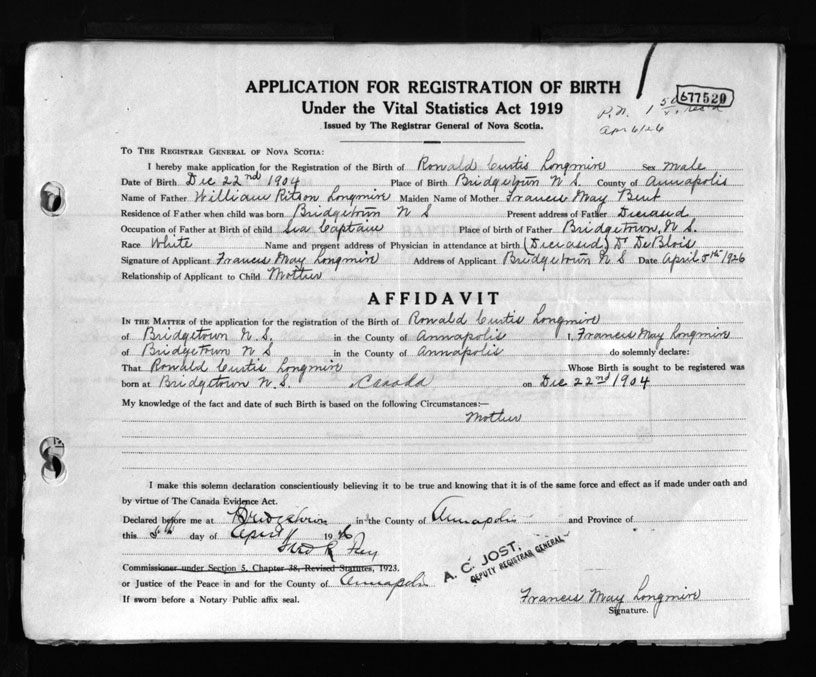 APPLICATION FOR REGISTRATION OF BIRTH
577520
Under the Vital Statistics Act 1919
Issued by The Registrar General of Nova Scotia.
TO THE REGISTRAR GENERAL OF NOVA SCOTIA:
I hereby make application for the Registration of the Birth of Ronald Curtis Longmire Sex male
Date of Birth Dec 22nd 1904 Place of Birth Bridgetown N S. County of Annapolis
Name of Father William Ritson Longmire Maiden Name of Mother Francis May Bent
Residence of Father when child was born Bridgetown N S Present address of Father Deceased
Occupation of Father at Birth of child Sea Captain Place of birth of Father Bridgetown, N. S.
Race White Name and present address of Physician in attendance at birth (Deceased) Dr DeBlois
Signature of Applicant Francis May Longmire Address of Applicant Bridgetown N S Date April 5th 1926
Relationship of Applicant to Child Mother
AFFIDAVIT
IN THE MATTER of the application for the registration of the Birth of Ronald Curtis Longmire
of Bridgetown N. S. in the County of Annapolis I, Francis May Longmire
of Bridgetown N S in the County of Annapolis do solemnly declare:
That Ronald Curtis Longmire Whose Birth is sought to be registered was
born at Bridgetown N. S. Canada on Dec 22nd 1904
My knowledge of the fact and date of such Birth is based on the following Circumstances:—
Mother
I make this solemn declaration conscientiously believing it to be true and knowing that it is of the same force and effect as if made under oath and
by virtue of The Canada Evidence Act.
Declared before me at Bridgetown in the County of Annapolis and Province of
this 5th day of April 1926
Commissioner under Section 5, Chapter 38, Revised Statutes, 1923.
A. C. JOST,
DEPUTY REGISTRAR GENERAL
or Justice of the Peace in and for the County of Annapolis
If sworn before a Notary Public affix seal.
Francis May Longmire
Signature.